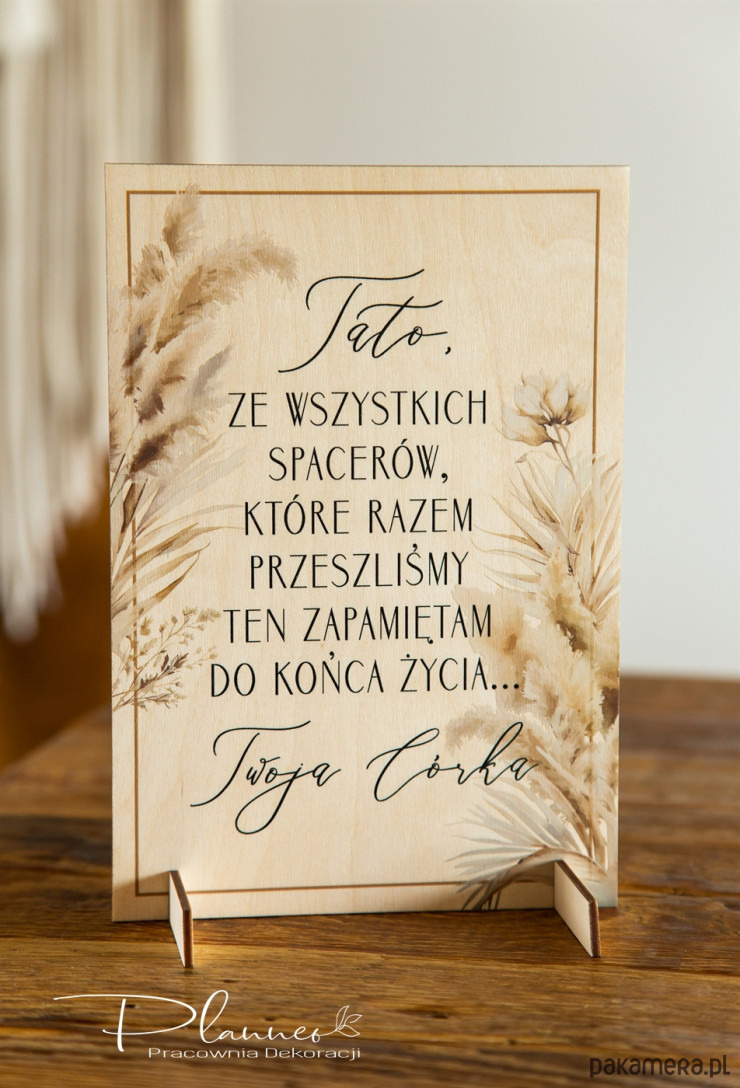 Tato,
ZE WSZYSTKICH
SPACERÓW,
KTÓRE RAZEM
PRZESZLIŚMY
TEN ZAPAMIĘTAM
DO KOŃCA ŻYCIA...
Twoja Córka
Planneo
Pracownia Dekoracji
pakamera.pl